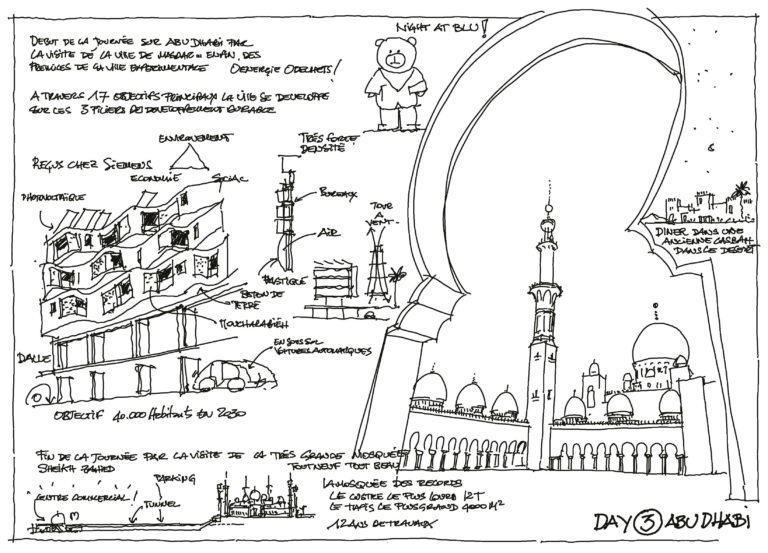 NIGHT AT BLU!
DEBUT DE LA JOURNÉE SUR ABU DHABI PAR
LA VISITE DE LA VILLE DE MASDAR = ENFIN, DES
PRÉMICES DE LA VILLE EXPERIMENTALE 0 ENERGIE 0 DECHETS!
A TRAVERS 17 OBJECTIFS PRINCIPAUX LA VILLE SE DEVELOPPE
SUR LES 3 PILIERS DU DEVELOPPEMENT DURABLE
ENVIRONEMENT
ECONOMIE SOCIAL
REÇUS CHEZ SIEMENS
TRÉS FORTE
DENSITÉ!
PHOTOVOLTAÏQUE
BUREAUX
AIR
TOUR
A
VENT
PLASTIQUE
BETON DE
TERRE
MOUCHARABIEH
DALLE
EN SOUS SOL
VOITURES AUTOMATIQUES
OBJECTIF 40.000 Habitants EN 2030
DINER DANS UNE
ANCIENNE CASBAH
DANS LE DESERT
FIN DE LA JOURNÉE PAR LA VISITE DE LA TRÈS GRANDE MOSQUÉE
SHEIKH ZAYED TOUT NEUF TOUT BEAU
PARKING
CENTRE COMMERCIAL!
TUNNEL
LA MOSQUÉE DES RECORDS
LE LUSTRE LE PLUS LOURD 12T
LE TAPIS LE PLUS GRAND 4000 M²
12 ANS DE TRAVAUX
DAY 3 ABU DHABI